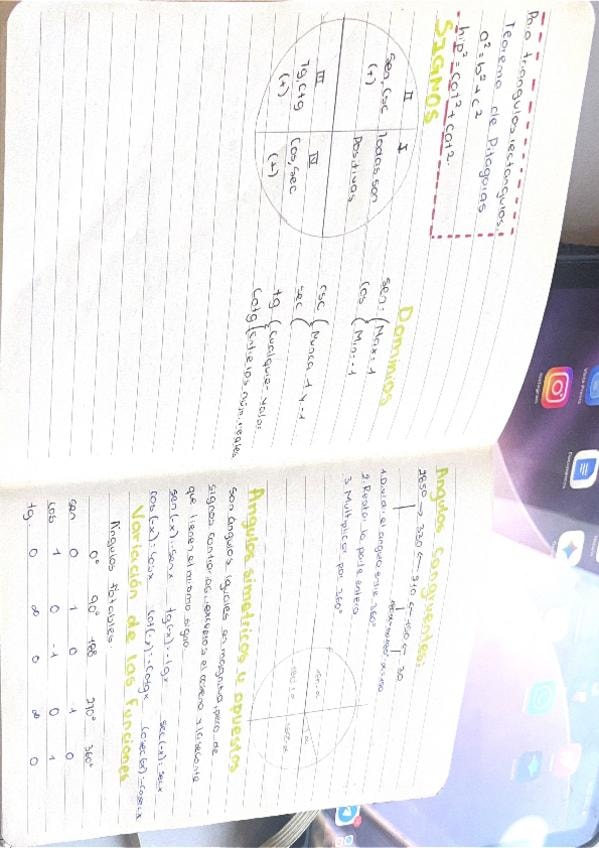 Para triangulos rectangulos.
Teorema de Pitagoras
a² = b² + c²
hip² = cat² + cat².
SIGNOS
II
I
Sen, Csc
(+)
Todas son
Positivas
III
Tg, Ctg
(+)
IV
Cos, Sec
(+)
Dominios
Sen = { Max = 1
Cos { Min = -1
Csc { Nunca 1 y -1
Sec
tg { Cualquier valor
Cotg { entre los núm. reales
Angulos Congruentes:
1. Dividir el angulo entre 360°
2. Restar la parte entera
3. Multiplicar por 360°
Angulos simetricos u opuestos
son ángulos iguales en magnitud, pero de
signos contrarios, excepto el coseno y la secante
que tienen el mismo signo.
sen(-x) = -senx tg(-x) = -tgx sec(-x) = secx
cos(-x) = cosx
Variación de las funciones
Angulos Notables
0° 90° 180° 270° 360°
sen 0 1 0
cos 1 0 -1 0 1
tg 0 ∞ 0 ∞ 0
Instagram